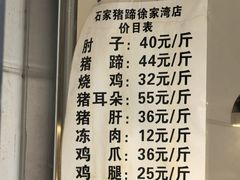 石家猪蹄徐家湾店
价目表
肘 子: 40元/斤
猪 蹄: 44元/斤
烧 鸡: 32元/斤
猪耳朵: 55元/斤
猪 肝: 36元/斤
冻 肉: 12元/斤
鸡 爪: 36元/斤
鸡 腿: 25元/斤